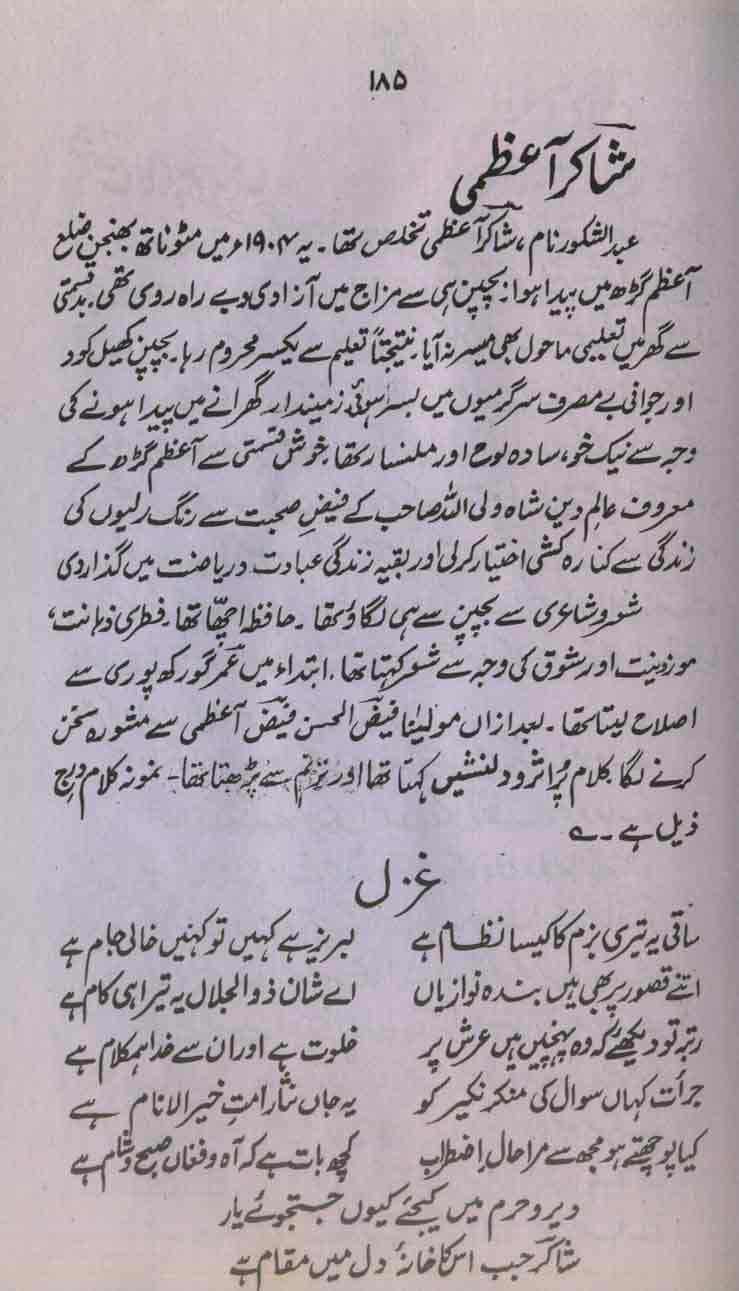 ۱۸۵
شاکر آعظمی
عبدالشکور نام، شاکر آعظمی تخلص تھا۔ یہ ۱۹۰۴ء میں مئو ناتھ بھنجن ضلع
آعظم گڑھ میں پیدا ہوا۔ بچپن ہی سے مزاج میں آزادی و بے راہ روی تھی۔ بدقسمتی
سے گھر میں تعلیمی ماحول بھی میسر نہ آیا۔ نتیجتاً تعلیم سے یکسر محروم رہا۔ بچپن کھیل کود
اور جوانی بے مصرف سرگرمیوں میں بسر ہوئی زمیندار گھرانے میں پیدا ہونے کی
وجہ سے نیک خو، سادہ لوح اور ملنسار تھا۔ خوش قسمتی سے آعظم گڑھ کے
معروف عالمِ دین شاہ ولی اللہ صاحب کے فیضِ صحبت سے رنگ رلیوں کی
زندگی سے کنارہ کشی اختیار کرلی اور بقیہ زندگی عبادت و ریاضت میں گذار دی
شعر و شاعری سے بچپن سے ہی لگاؤ تھا۔ حافظہ اچھا تھا۔ فطری ذہانت،
موزونیت اور شوق کی وجہ سے شعر کہتا تھا۔ ابتداء میں عمر گورکھپوری سے
اصلاح لیتا تھا۔ بعد ازاں مولینا فیض الحسن فیض آعظمی سے مشورہ سخن
کرنے لگا۔ کلام پُر اثر و دلنشیں کہتا تھا اور ترنم سے پڑھتا تھا۔ نمونہ کلام درج
ذیل ہے۔ ؎
غزل
ساقی یہ تیری بزم کا کیسا نظام ہے لبریز ہے کہیں تو کہیں خالی جام ہے
اتنے قصور پر بھی ہیں بندہ نوازیاں اے شان ذوالجلال یہ تیرا ہی کام ہے
رتبہ تو دیکھئے کہ وہ پہنچیں ہیں عرش پر خلوت ہے اور ان سے خدا ہمکلام ہے
جرأت کہاں سوال کی منکر نکیر کو یہ جاں نثار امتِ خیر الانام ہے
کیا پوچھتے ہو مجھ سے مرا حال اضطراب کچھ بات ہے کہ آہ و فغاں صبح و شام ہے
دیر و حرم میں کیجئے کیوں جستجوئے یار
شاکر جب اس کا خانۂ دل میں مقام ہے